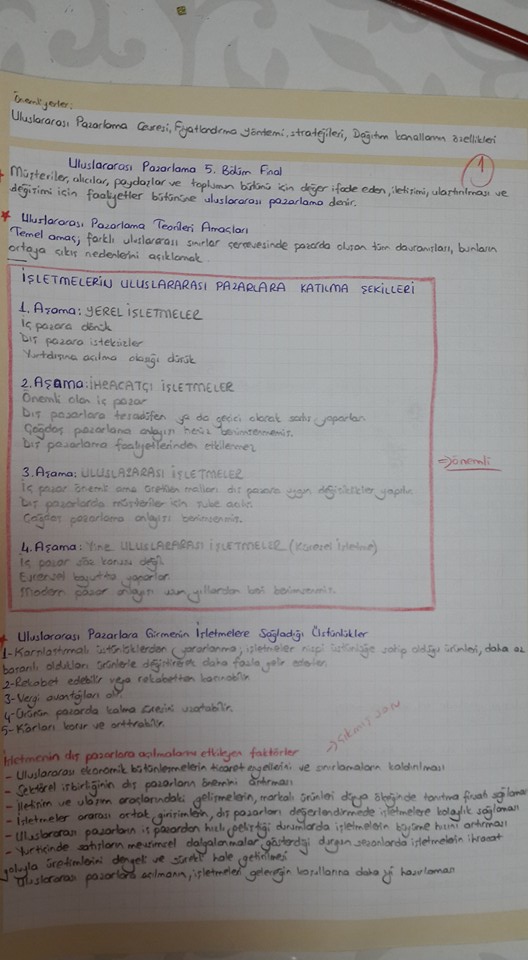 Önemli yerler:
Uluslararası Pazarlama Çevresi, Fiyatlandırma yöntemi, stratejileri, Dağıtım kanallarının özellikleri
Uluslararası Pazarlama 5. Bölüm Final
1
Müşteriler, alıcılar, paydaşlar ve toplumun bütünü için değer ifade eden, iletişimi, ulaştırılması ve
değişimi için faaliyetler bütününe uluslararası pazarlama denir.
Uluslararası Pazarlama Teorileri Amaçları
Temel amaç; farklı uluslararası sınırlar çerçevesinde pazarda oluşan tüm davranışları, bunların
ortaya çıkış nedenlerini açıklamak.
İŞLETMELERİN ULUSLARARASI PAZARLARA KATILMA ŞEKİLLERİ
1. Aşama: YEREL İŞLETMELER
İç pazara dönük
Dış pazara isteksizler
Yurtdışına açılma olasığı düşük
2. Aşama: İHRACATÇI İŞLETMELER
Önemli olan iç pazar
Dış pazarlara tesadüfen ya da geçici olarak satış yaparlar
Çağdaş pazarlama anlayışı henüz benimsenmemiş.
Dış pazarlama faaliyetlerinden etkilenmez
3. Aşama: ULUSLARARASI İŞLETMELER
İç pazar önemli ama üretilen malları dış pazara uygun değişiklikler yapılır.
Dış pazarlarda müşteriler için şube açılır.
Çağdaş pazarlama anlayışı benimsenmiş.
→ önemli
4. Aşama: Yine ULUSLARARASI İŞLETMELER (Küresel İşletme)
İç pazar söz konusu değil
Evrensel boyutta yaparlar
Modern pazar anlayışı uzun yıllardan beri benimsenmiş.
Uluslararası Pazarlara Girmenin İşletmelere Sağladığı Üstünlükler
1- Karşılaştırmalı üstünlüklerden yararlanma, işletmeler nispi üstünlüğe sahip olduğu ürünleri, daha az
başarılı oldukları ürünlerle değiştirerek daha fazla gelir ederler.
2- Rekabet edebilir veya rekabetten kaçınabilir
3- Vergi avantajları alır.
4- Ürünün pazarda kalma süresini uzatabilir.
5- Karları korur ve arttırabilir.
İşletmenin dış pazarlara açılmalarını etkileyen faktörler
→ çıkmış soru
- Uluslararası ekonomik bütünleşmelerin ticaret engellerini ve sınırlamaların kaldırılması
- Sektörel işbirliğinin dış pazarların önemini artırması
- İletişim ve ulaşım araçlarındaki gelişmelerin, markalı ürünleri dünya ölçeğinde tanıtma fırsatı sağlaması
- İşletmeler arası ortak girişimlerin, dış pazarları değerlendirmede işletmelere kolaylık sağlaması
- Uluslararası pazarların iç pazardan hızlı geliştiği durumlarda işletmelerin büyüme hızını artırması
- Yurtiçinde satışların mevsimsel dalgalanmalar gösterdiği durgun sezonlarda işletmelerin ihracat
yoluyla üretimlerini dengeli ve sürekli hale getirilmesi
- Uluslararası pazarlara açılmanın, işletmeleri geleceğin koşullarına daha iyi hazırlaması